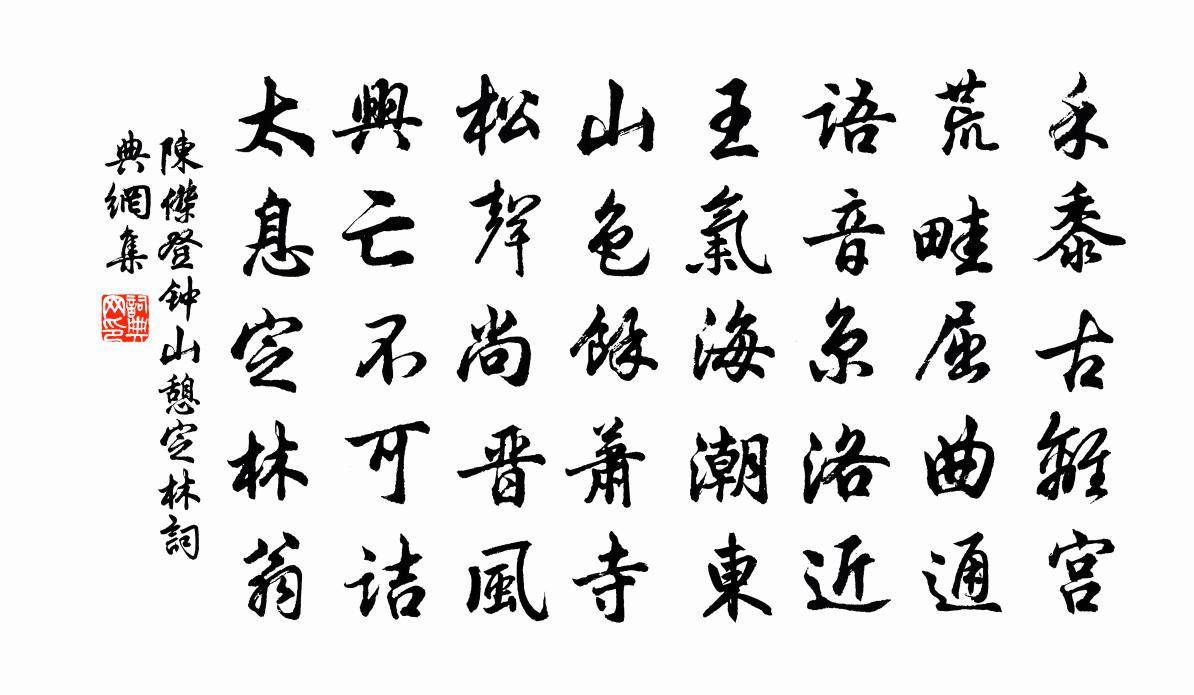 禾黍古離宫
荒畦屈曲通
語音京洛近
王氣海潮東
山色餘蕭寺
松聲尚晋風
興亡不可詰
太息定林翁
陳傑登钟山憩定林詞
典網集
詞典网印